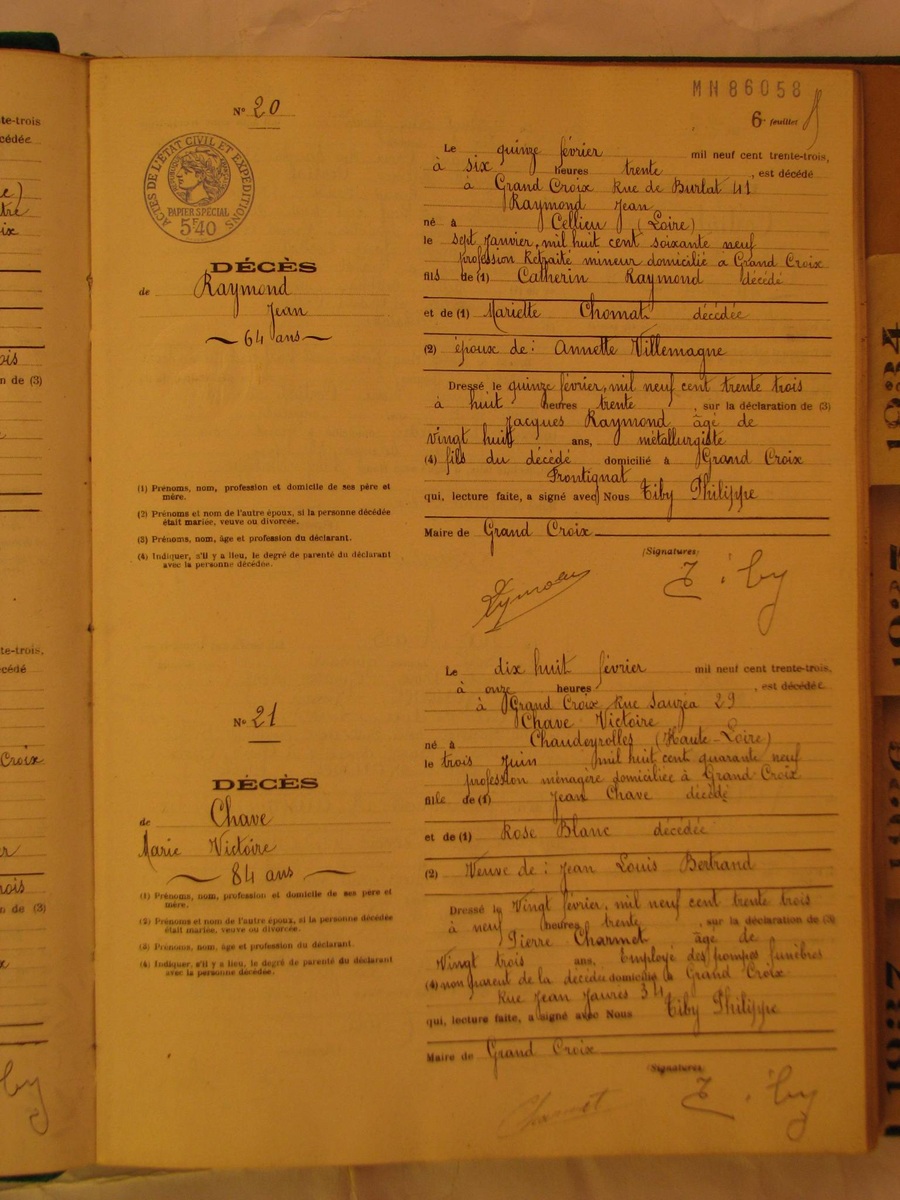 MN86058
6e feuillet
N° 20
ACTES DE L'ETAT CIVIL ET EXPEDITIONS
PAPIER SPÉCIAL
5F40
DÉCÈS
de Raymond
Jean
64 ans
(1) Prénoms, nom, profession et domicile de ses père et
mère.
(2) Prénoms et nom de l'autre époux, si la personne décédée
était mariée, veuve ou divorcée.
(3) Prénoms, nom, âge et profession du déclarant.
(4) Indiquer, s'il y a lieu, le degré de parenté du déclarant
avec la personne décédée.
Le quinze février mil neuf cent trente-trois,
à six heures trente, est décédé
à Grand Croix Rue de Burlat 41
Raymond Jean
né à Cellieu (Loire)
le sept Janvier, mil huit cent soixante neuf
profession Retraité mineur domicilié à Grand Croix
fils de (1) Catherin Raymond décédé
et de (1) Mariette Chomat décédée
(2) époux de : Annette Villemagne
Dressé le quinze février, mil neuf cent trente trois
à huit heures trente, sur la déclaration de (3)
Jacques Raymond âgé de
vingt huit ans, métallurgiste
(4) fils du décédé domicilié à Grand Croix
Frontignat
qui, lecture faite, a signé avec Nous Tiby Philippe
Maire de Grand Croix
(Signatures)
Tiby
N° 21
DÉCÈS
de Chave
Marie Victoire
84 ans
(1) Prénoms, nom, profession et domicile de ses père et
mère.
(2) Prénoms et nom de l'autre époux, si la personne décédée
était mariée, veuve ou divorcée.
(3) Prénoms, nom, âge et profession du déclarant.
(4) Indiquer, s'il y a lieu, le degré de parenté du déclarant
avec la personne décédée.
Le dix huit février mil neuf cent trente-trois,
à onze heures, est décédée
à Grand Croix Rue Sauzéa 29
Chave Victoire
né à Chaudeyrolles (Haute-Loire)
le trois Juin mil huit cent quarante neuf
profession ménagère domiciliée à Grand Croix
fille de (1) Jean Chave décédé
et de (1) Rose Blanc décédée
(2) Veuve de : Jean Louis Bertrand
Dressé le Vingt février, mil neuf cent trente trois
à neuf heures trente, sur la déclaration de (3)
Pierre Charmet âge de
Vingt trois ans, Employé des pompes funèbres
(4) non parent de la décédée domicilié à Grand Croix
Rue Jean Jaures 34
qui, lecture faite, a signé avec Nous Tiby Philippe
Maire de Grand Croix
(Signatures)
Charmet
Tiby